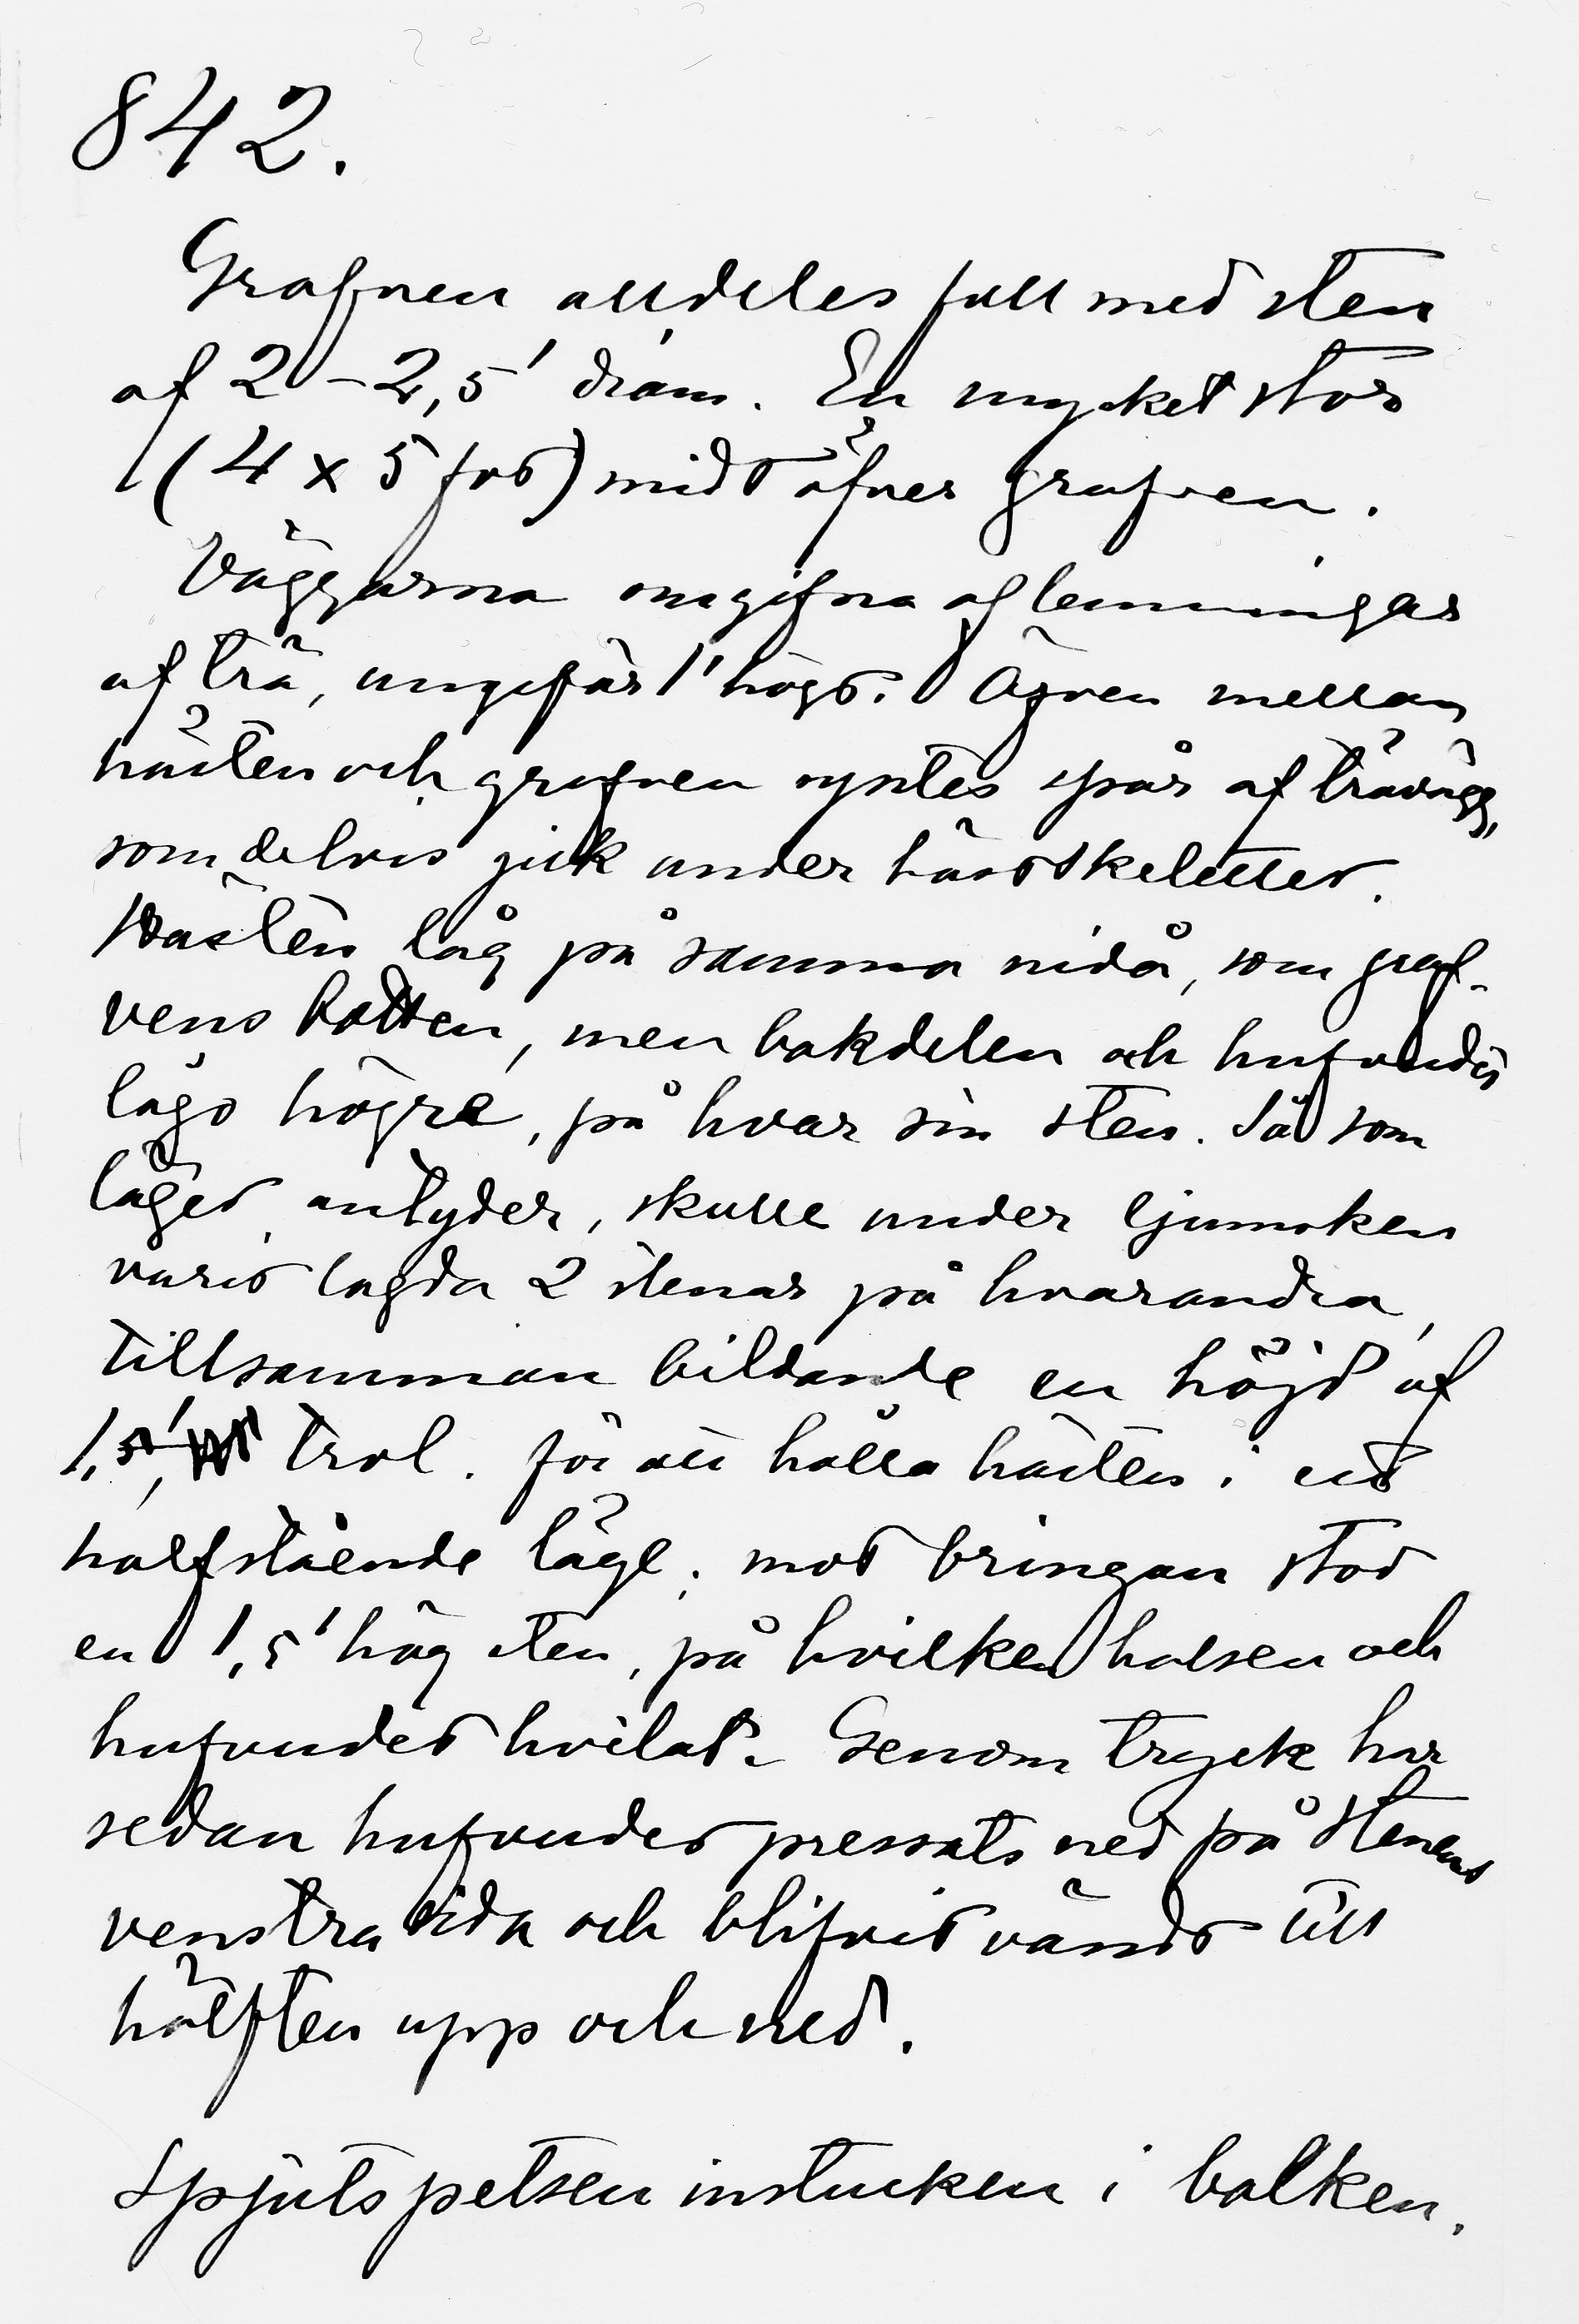 842.
Grafven alldeles full med sten
af 2–2,5' diam. En mycket stor
(4 x 5 fot) midt öfver grafven.
Väggarna omgifna af lemningar
af trä, ungefär 1' högt. Äfven mellan
hästen och grafven syntes spår af trävägg,
som delvis gick under hästskelettet.
Hästen låg på samma nivå, som graf-
vens botten, men bakdelen och hufvudet
lågo högre, på hvar sin sten. Så som
läget antyder, skulle under ljumsken
varit lagda 2 stenar på hvarandra,
tillsamman bildande en höjd af
1,5', trol. för att hålla hästen i ett
halfstående läge; mot bringan stod
en 1,5' hög sten, på hvilken halsen och
hufvudet hvilat. Genom tryck har
sedan hufvudet pressats ned på stenens
venstra sida och blifvit vändt till
hälften upp och ned.
Spjutspetsen instucken i balken.